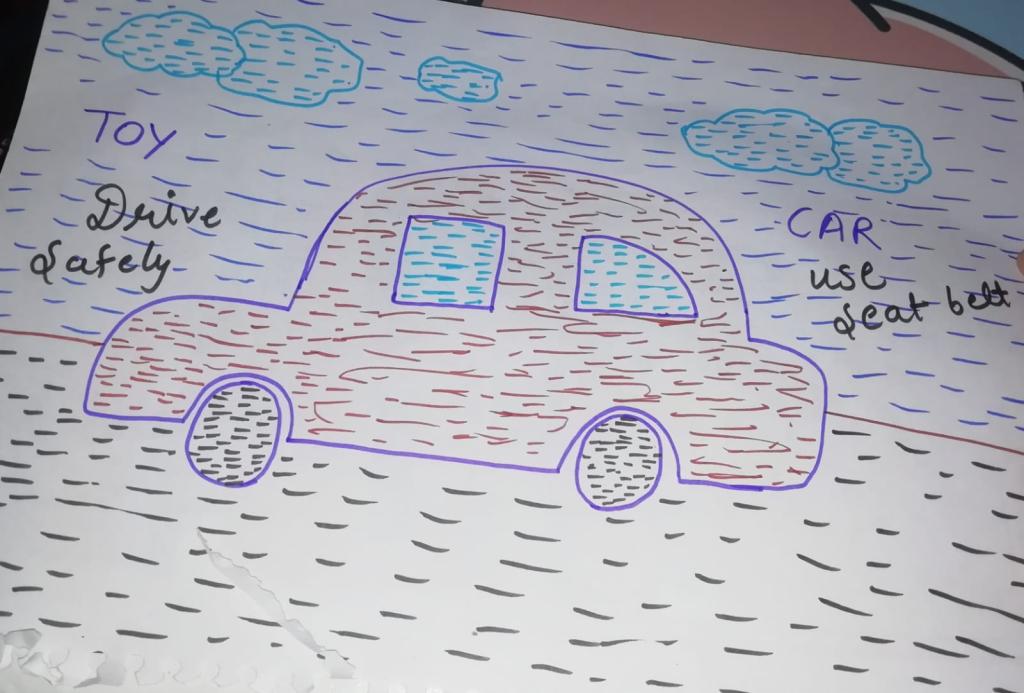 TOY
Drive
Safely
CAR
use
seat belt